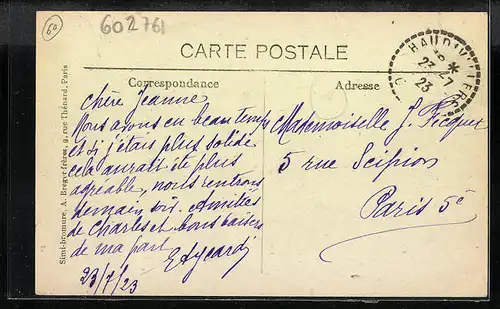 60
602761
CARTE POSTALE
Correspondance
Adresse
23 - 7
23
Chère Jeanne
Nous avons eu beau temps
et si j'étais plus solide
cela aurait été plus
agréable, nous rentrons
demain soir. Amitiés
de Charles et bons baisers
de ma part
23/7/23
Mademoiselle J.
5 rue Scipion
Paris 5e
Simi-bromure, A. Breger frères, 9, rue Thénard, Paris